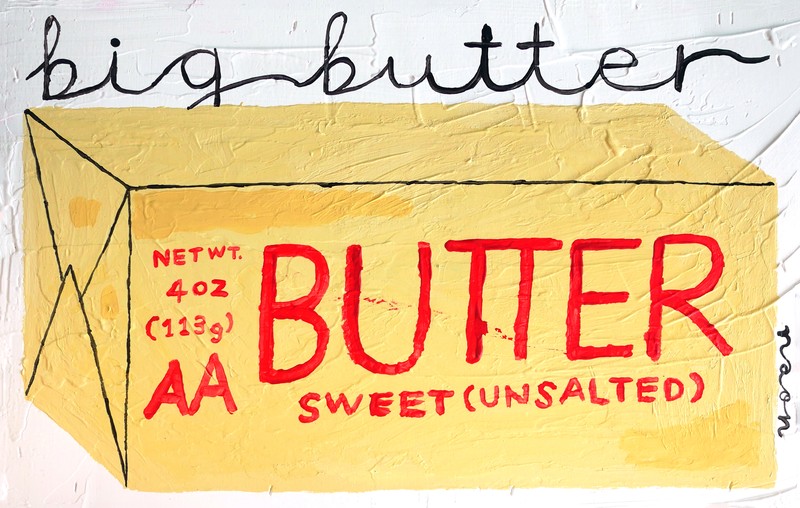 big butter
NET WT.
4oz
(113g)
AA
BUTTER
SWEET (UNSALTED)
naon